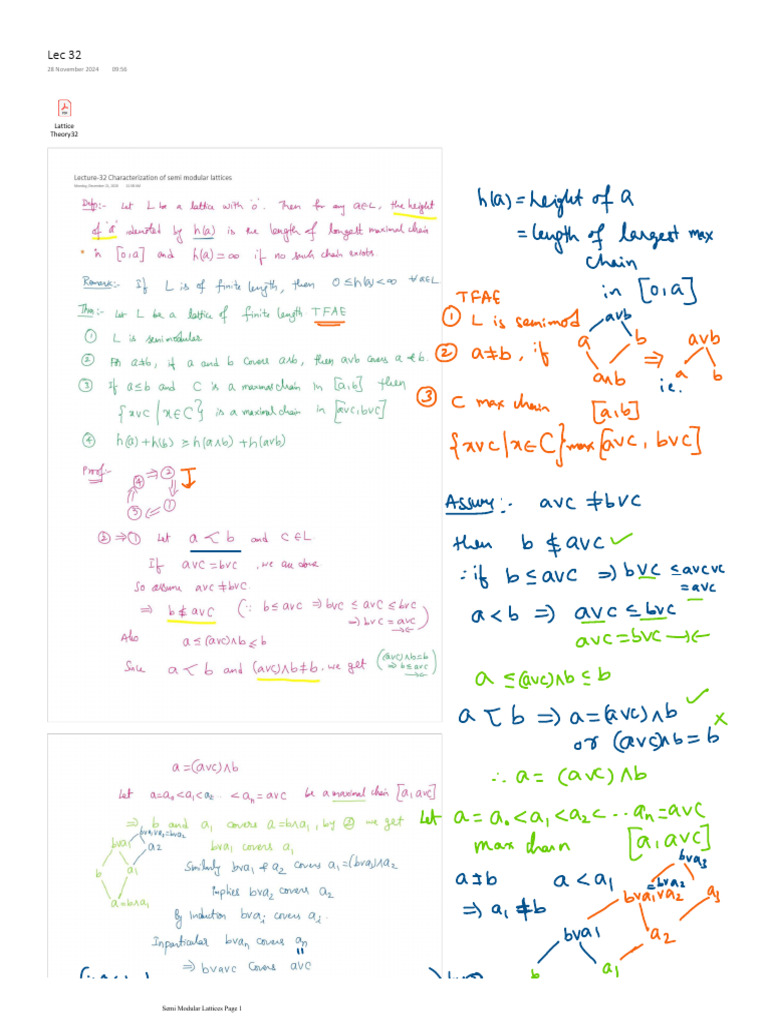 Lec 32
28 November 2024 09:56
Lattice
Theory32
Lecture-32 Characterization of semi modular lattices
Defn:- Let L be a lattice with 'o'. Then for any a∈L, the height
of 'a' denoted by h(a) is the length of longest maximal chain
in [0,a] and h(a)=∞ if no such chain exists.
Remark:- If L is of finite length, then 0≤h(a)<∞ ∀a∈L
Thm:- Let L be a lattice of finite length TFAE
① L is semimodular
② a≠b, if a and b covers a∧b, then a∨b covers a & b.
③ If a≤b and C is a maximal chain in [a,b] then
{x∨c | x∈C} is a maximal chain in [a∨c, b∨c]
④ h(a)+h(b) ≥ h(a∧b)+h(a∨b)
Proof:-
④ ⇒ ②
③ ⇐ ①
② ⇒ ① Let a ⤙ b and c∈L.
If a∨c = b∨c, we are done.
So assume a∨c ≠ b∨c.
⇒ b ≰ a∨c (∵ b≤a∨c ⇒ b∨c ≤ a∨c ≤ b∨c
⇒ b∨c = a∨c
→←)
Also a ≤ (a∨c)∧b ≤ b
Since a ⤙ b and (a∨c)∧b ≠ b, we get ((a∨c)∧b=b
⇒ b≤a∨c
→←)
h(a) = height of a
= length of largest max
chain
in [0,a]
TFAE
① L is semimod
② a≠b, if
a∨b
a b
a∧b
⇒
a∨b
a b
i.e.
③ C max chain [a,b]
{x∨c | x∈C} max [a∨c, b∨c]
Assume:- a∨c ≠ b∨c
then b ≰ a∨c ✓
∵ if b ≤ a∨c ⇒ b∨c ≤ a∨c∨c
= a∨c
a<b ⇒ a∨c ≤ b∨c
a∨c = b∨c →←
a ≤ (a∨c)∧b ≤ b
a ⤙ b ⇒ a = (a∨c)∧b ✓
or (a∨c)∧b = b ×
∴ a = (a∨c)∧b
a = (a∨c)∧b
Let a=a₀<a₁<a₂.. <aₙ=a∨c be a maximal chain [a, a∨c]
⇒ b and a₁ covers a=b∧a₁, by ② we get
b∨a₁ covers a₁
b∨a₁∨a₂=b∨a₂
b∨a₁ a₂
b a₁
a=b∧a₁
Similarly b∨a₁ & a₂ covers a₁=(b∨a₁)∧a₂
Implies b∨a₂ covers a₂
By Induction b∨aᵢ covers aᵢ.
Inparticular b∨aₙ covers aₙ
॥
⇒ b∨a∨c covers a∨c
Let a = a₀<a₁<a₂< ··· aₙ=a∨c
max chain [a, a∨c]
a≠b a<a₁
⇒ a₁ ≠ b
b∨a₃
=b∨a₂
b∨a₁∨a₂ a₃
b∨a₁ a₂
b a₁
Semi Modular Lattices Page 1